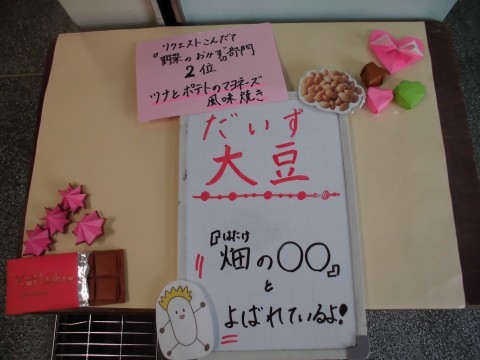 リクエストこんだて
『野菜のおかず』部門
2位
ツナとポテトのマヨネーズ
風味焼き
だいず
大豆
はたけ
『畑の〇〇』
と
よばれているよ!